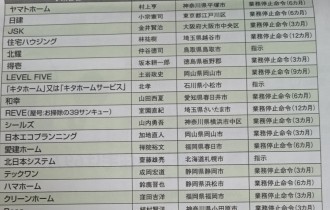 ヤマトホーム 村上亨 神奈川県平塚市 業務停止命令(6カ月)
日建 小宗憲司 東京都江戸川区 業務停止命令(6カ月)
JSK 金井賢治 大阪府大阪市中央区 業務停止命令(3カ月)
住宅ハウジング 林祐樹 埼玉県越谷市 業務停止命令(6カ月)
北耀 鳥取県鳥取市 指示
得壱 徳島県板野郡 業務停止命令(3カ月)
LEVEL FIVE 土岩政史 岡山県岡山市 業務停止命令(3カ月)
「キタホーム」又は「キタホームサービス」 北孝 石川県小松市 指示
和幸 山田西夏 愛知県春日井市 業務停止命令(6カ月)
REVE(屋号:お掃除の39サンキュー) 宮園直紀 埼玉県さいたま市 業務停止命令(12カ月)
シールズ 山内勇 神奈川県横浜市中区 業務停止命令(3カ月)
日本エコプランニング 加地直人 岡山県岡山市 業務停止命令(3カ月)
愛建ホーム 福岡県春日市 業務停止命令(6カ月)
北日本システム 齋藤雄亮 北海道札幌市 指示
テックワン 成岡宏康 静岡県静岡市 業務停止命令(3カ月)
ハマホーム 静岡県浜松市 業務停止命令(6カ月)
クリーンホーム 深田吉洋 福岡県福岡市 業務停止命令(6カ月)
神奈川県小田原市 業務停止命令(3カ月)